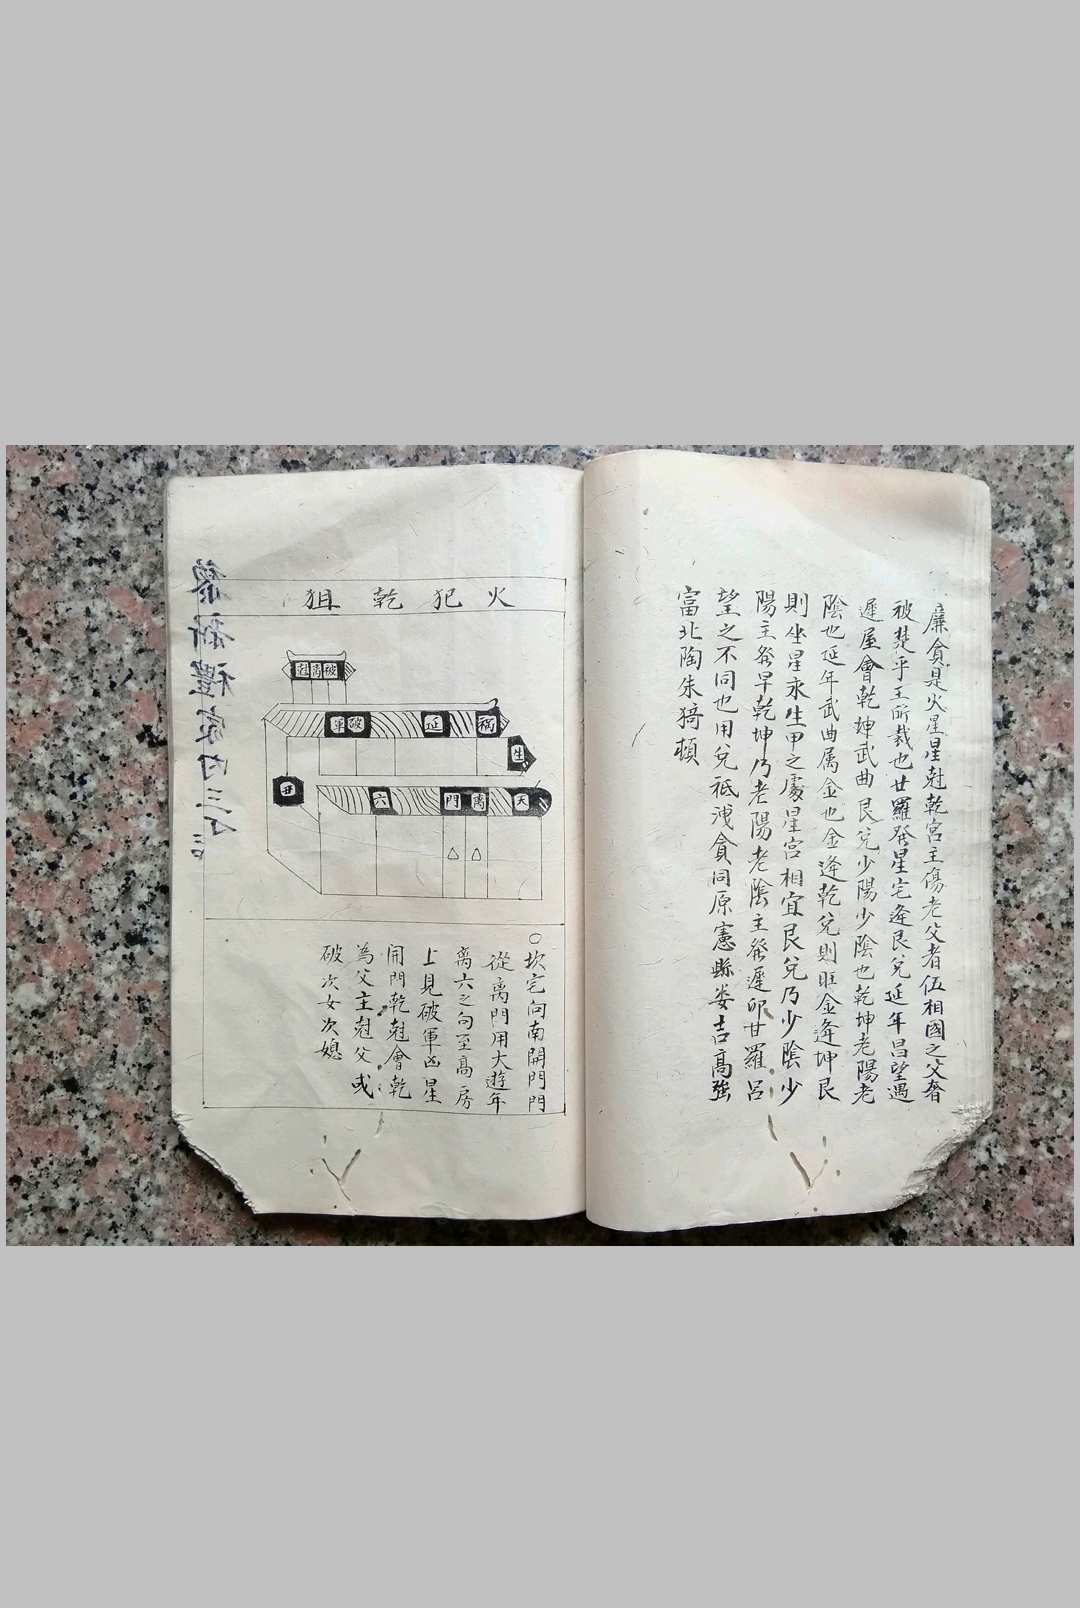 廉貪是火星星尅乾宮主傷老父者伍相國之父奢
被楚平王所戮也甘羅發星宅逢艮兌延年昌望遇
遲屋會乾坤武曲艮兌少陽少陰也乾坤老陽老
陰也延年武曲属金也金逢乾兌則旺金逢坤艮
則坐星永生甲之處星宮相宜艮兌乃少陰少
陽主發早乾坤乃老陽老陰主發遲卯甘羅呂
望之不同也用兌祗洩貪同原憲縣娄吉高強
富北陶朱猗頓
火犯乾狙
尅高破
軍破
延
福
生
丑
六
門
离
天
○坎宅向南開門門
從离門用大遊年
离六之句至高房
上見破軍凶星
開門乾尅會乾
為父主尅父或
破次女次媳